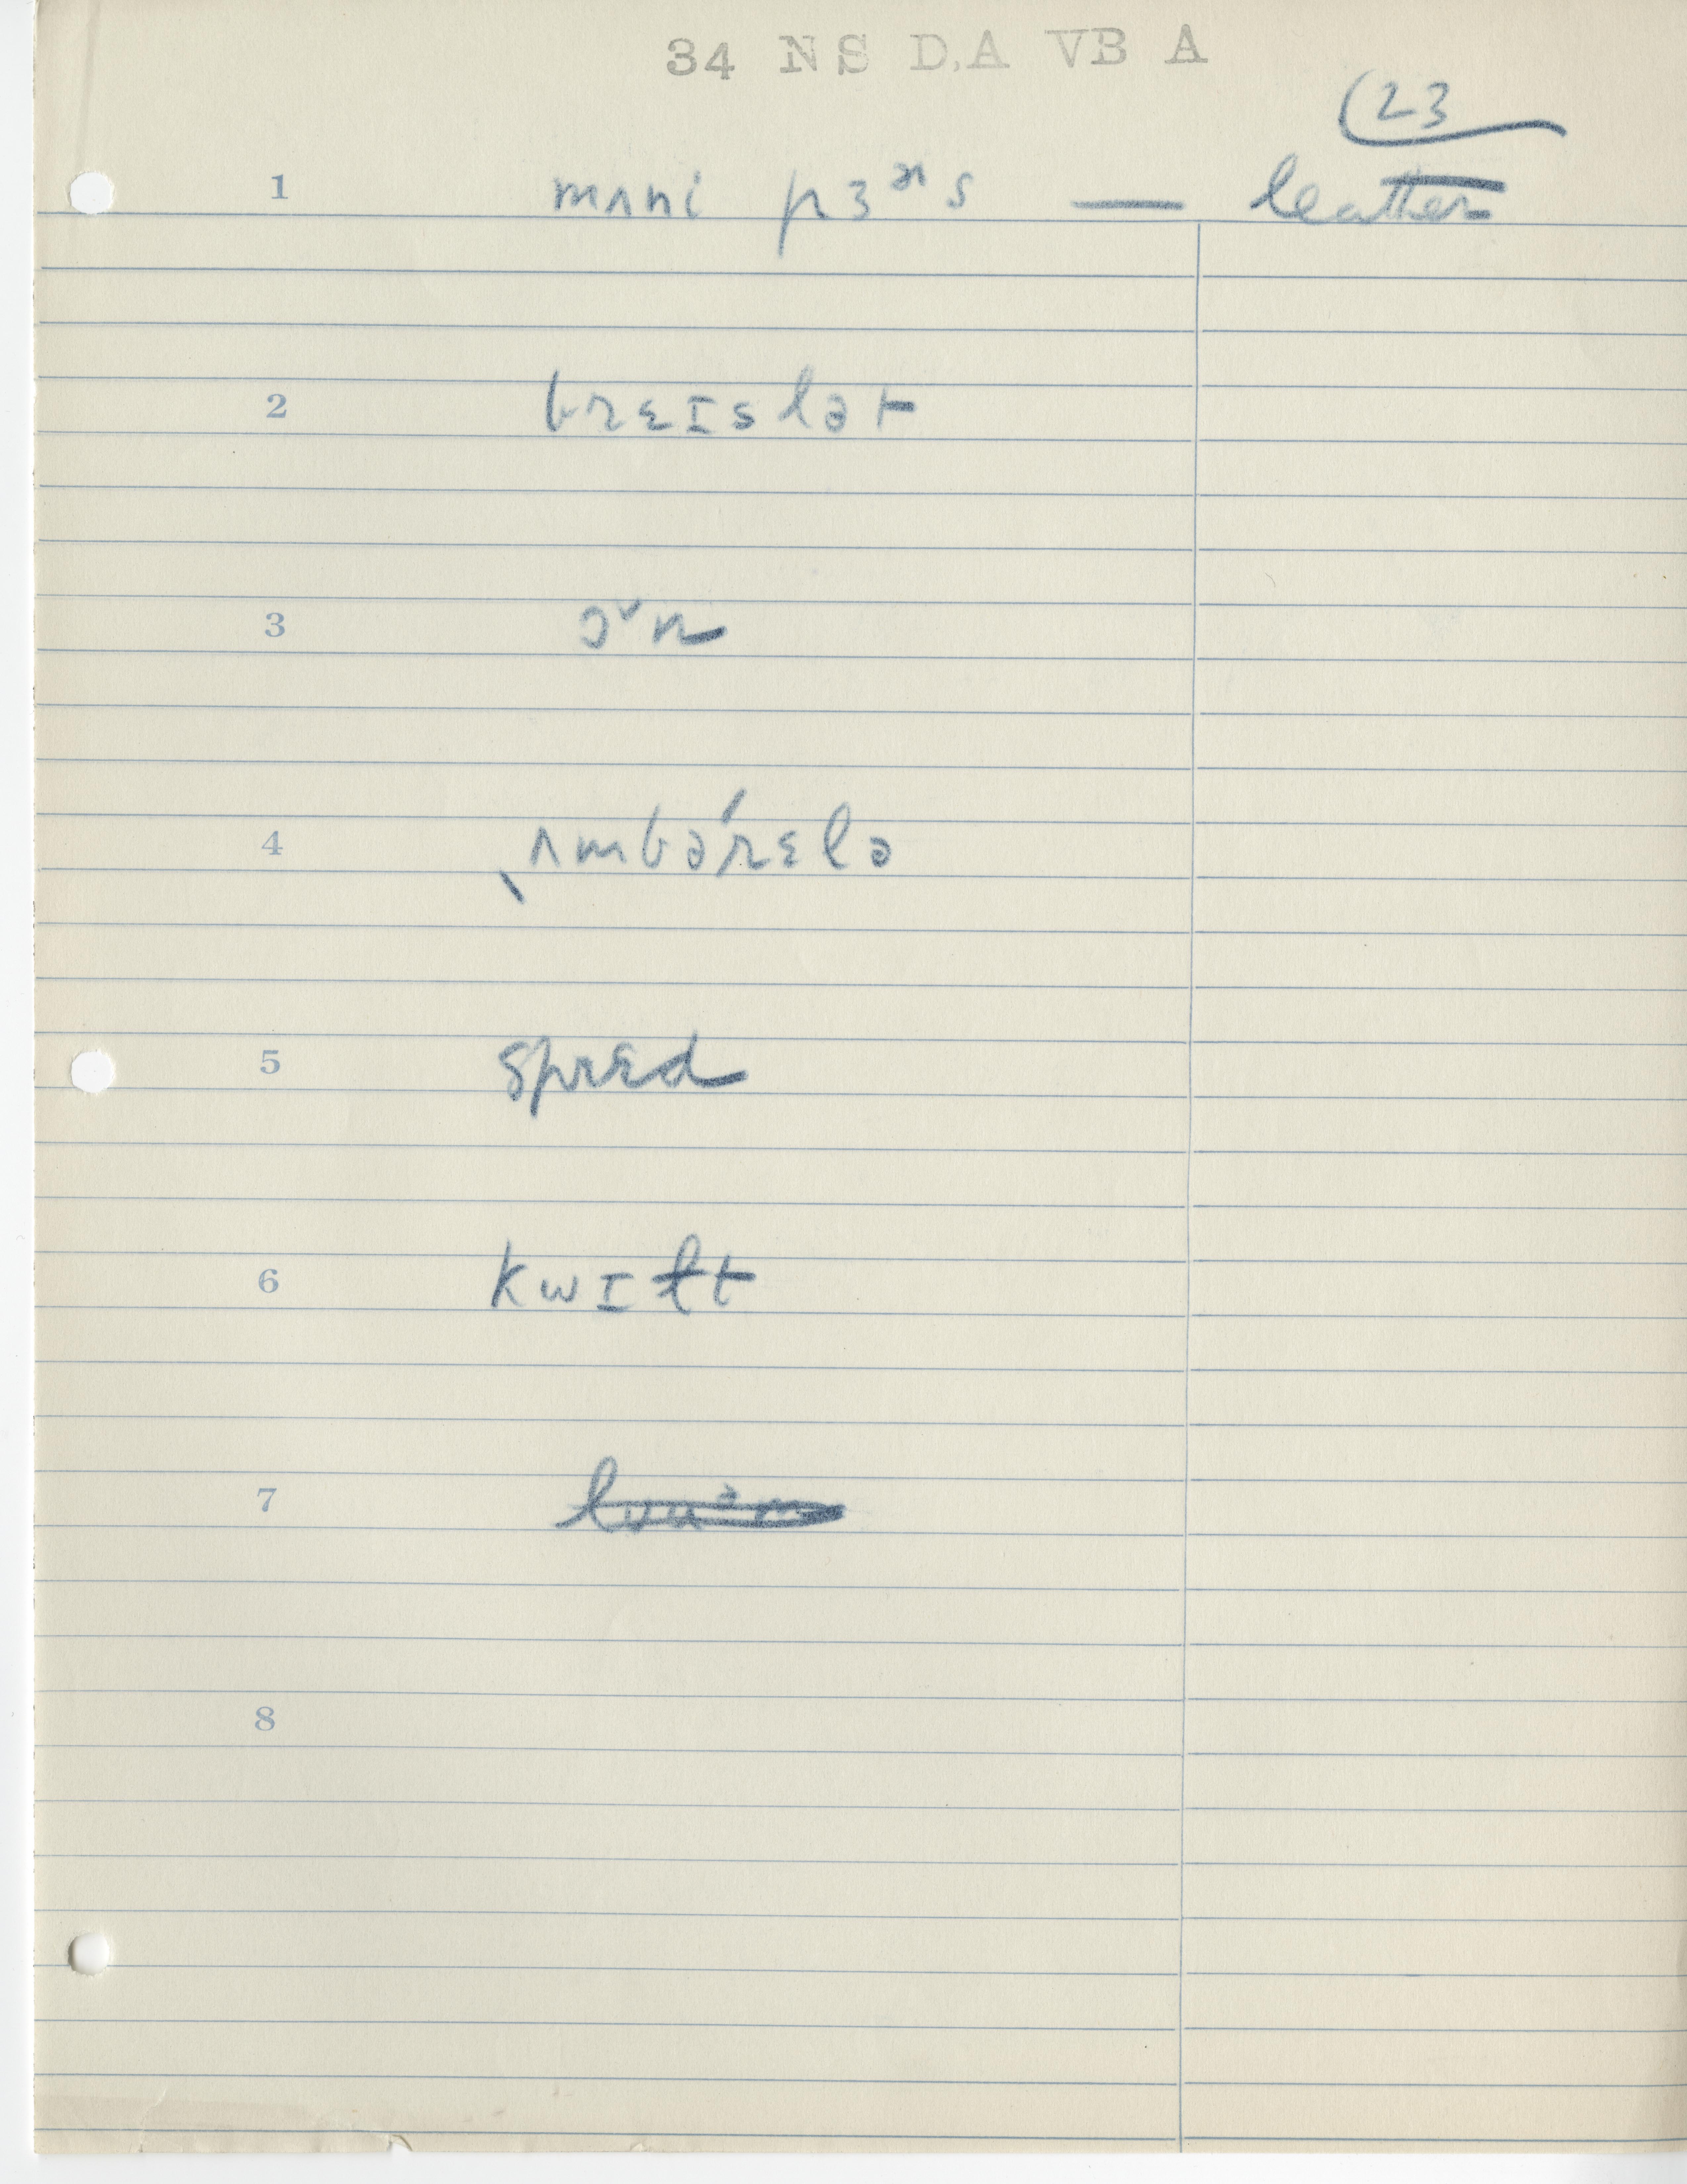 34 NS D,A VB A
(23
1 mʌni pɜᵊʳs — leather
2 brɛɪslət
3 ɔᵛn
4 ˌʌmbəˈrɛlə
5 sprɛd
6 kwɪɫt
7
8